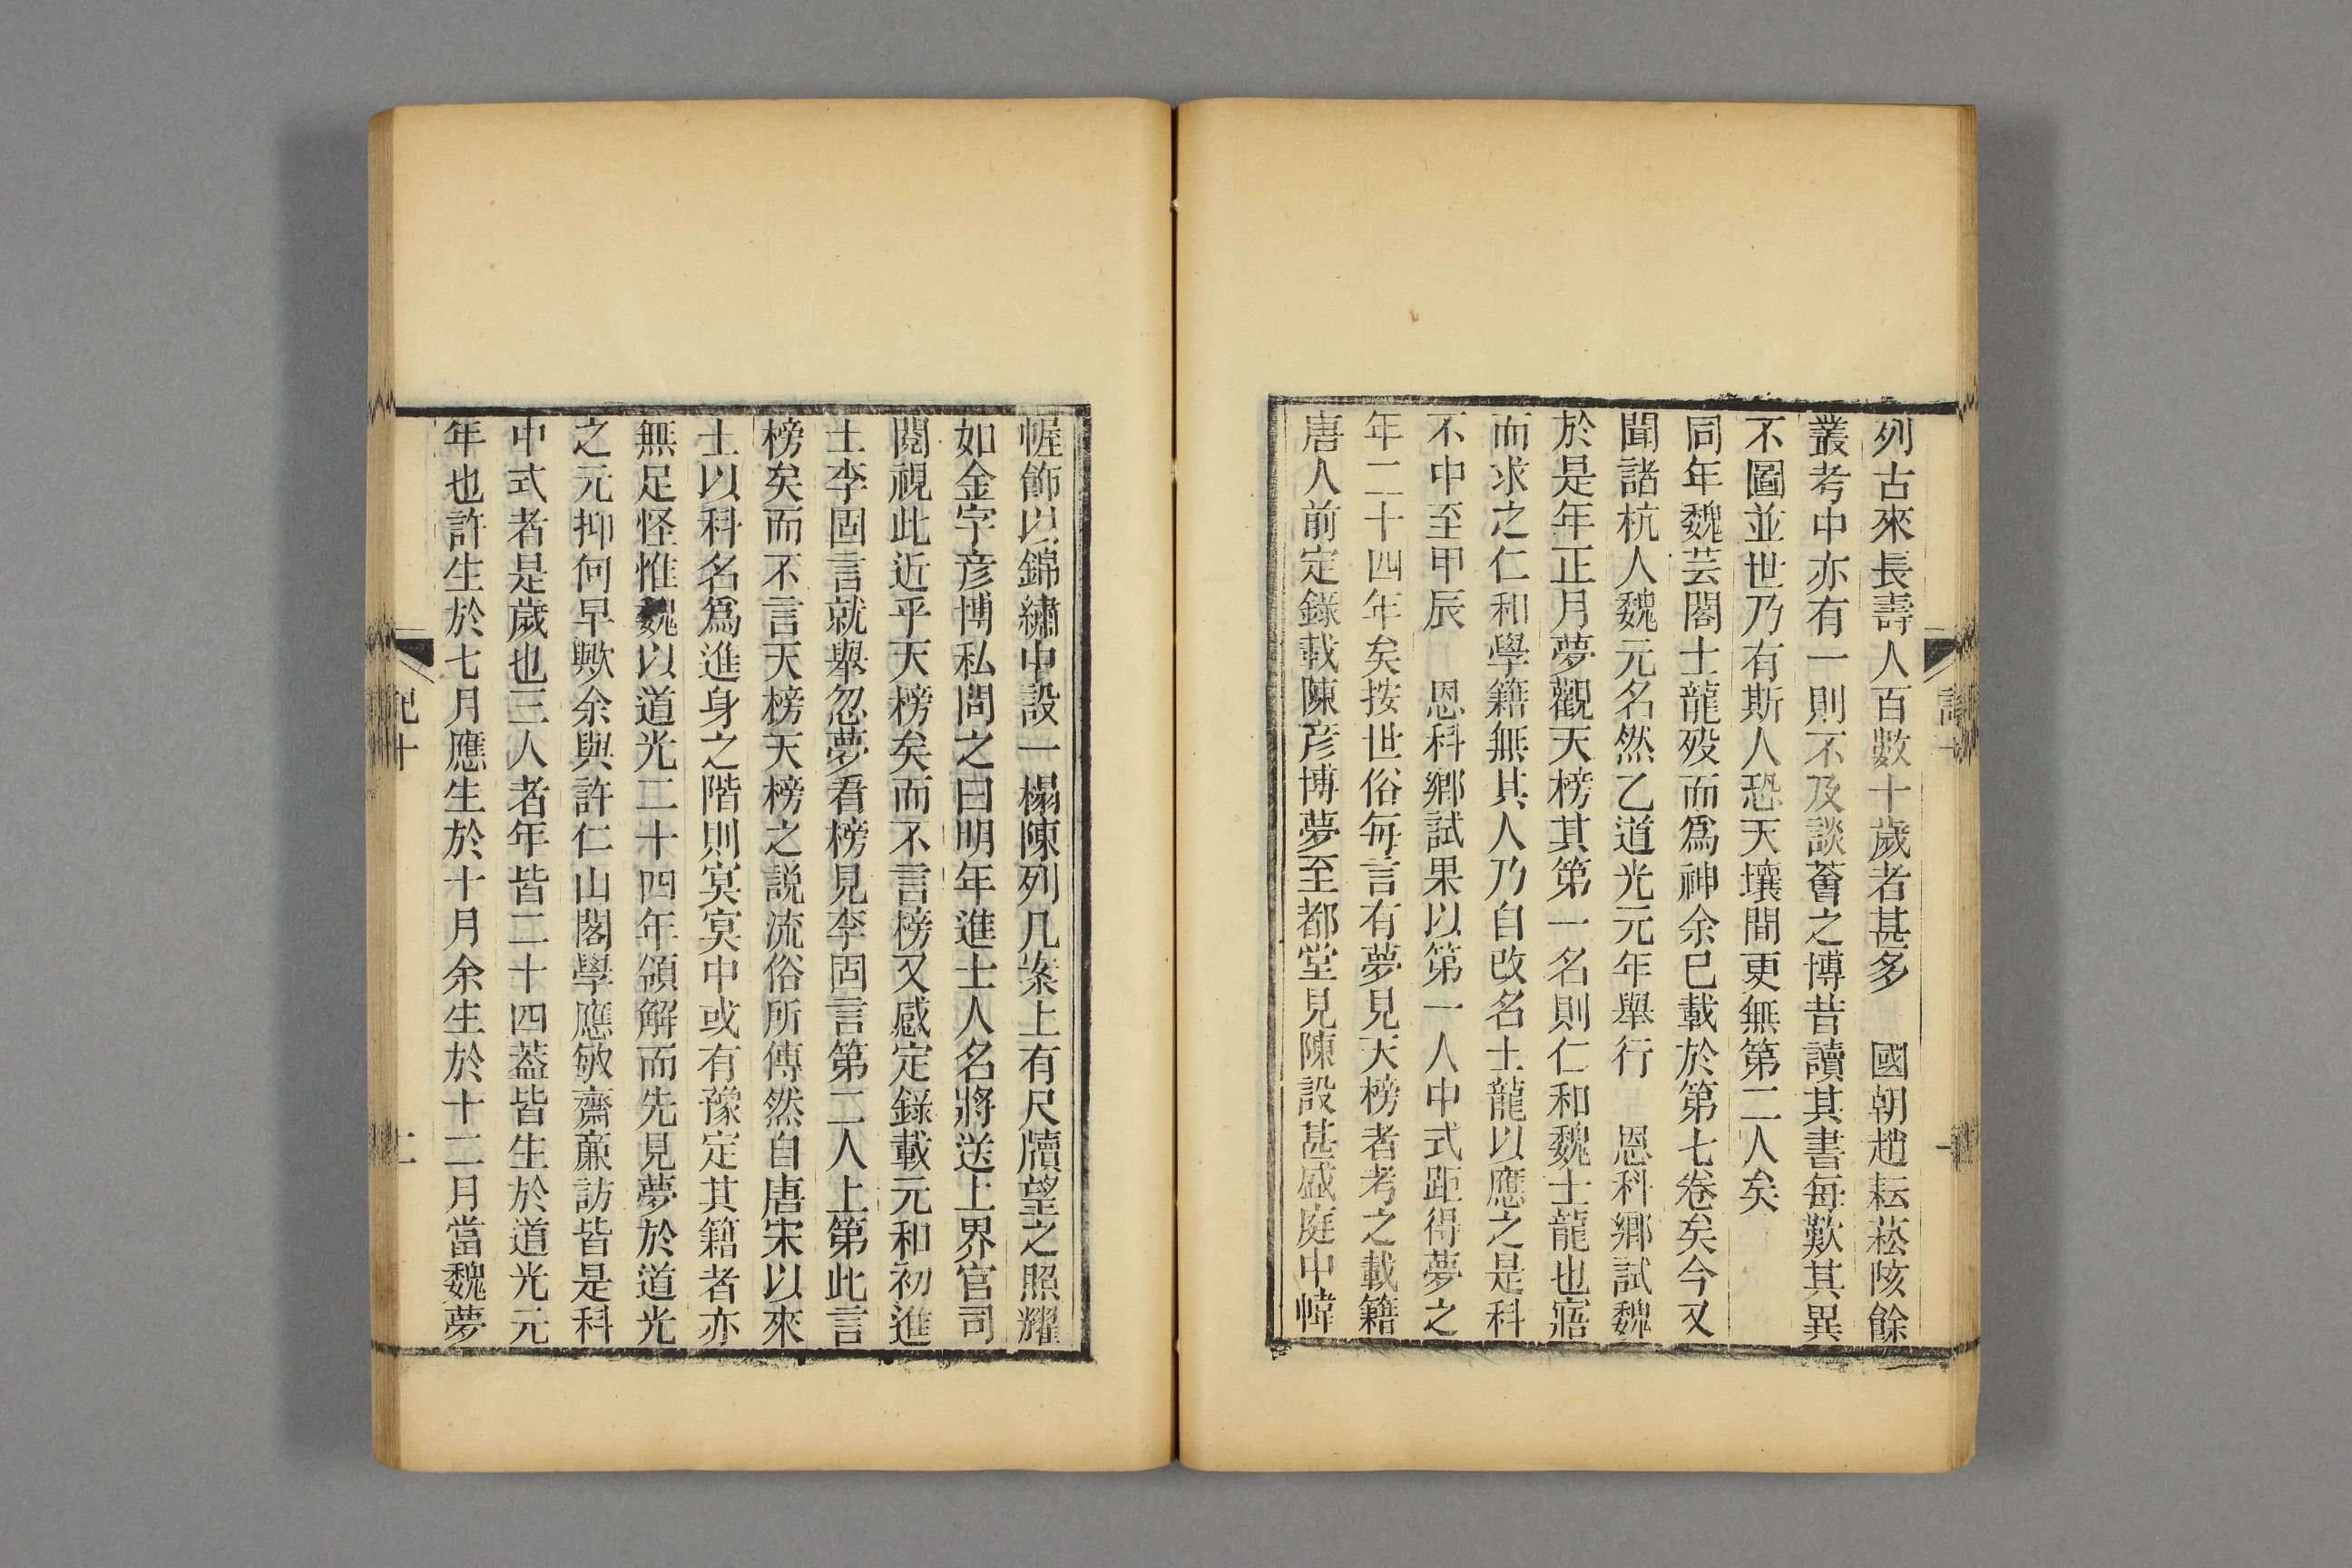 列古來長壽人百數十歲者甚多　國朝趙耘菘陔餘
叢考中亦有一則不及談薈之博昔讀其書每歎其異
不圖並世乃有斯人恐天壤間更無第二人矣
同年魏芸閣士龍歿而爲神余已載於第七卷矣今又
聞諸杭人魏元名然乙道光元年舉行　恩科鄉試魏
於是年正月夢觀天榜其第一名則仁和魏士龍也寤
而求之仁和學籍無其人乃自改名士龍以應之是科
不中至甲辰　恩科鄉試果以第一人中式距得夢之
年二十四年矣按世俗每言有夢見天榜者考之載籍
唐人前定錄載陳彥博夢至都堂見陳設甚盛庭中幃
幄飾以錦繡中設一榻陳列几案上有尺牘望之照耀
如金字彥博私問之曰明年進士人名將送上界官司
閱視此近乎天榜矣而不言榜又感定錄載元和初進
士李固言就舉忽夢看榜見李固言第二人上第此言
榜矣而不言天榜天榜之說流俗所傳然自唐宋以來
士以科名爲進身之階則冥冥中或有豫定其籍者亦
無足怪惟魏以道光二十四年領解而先見夢於道光
之元抑何早歟余與許仁山閣學應敏齋廉訪皆是科
中式者是歲也三人者年皆二十四葢皆生於道光元
年也許生於七月應生於十月余生於十二月當魏夢